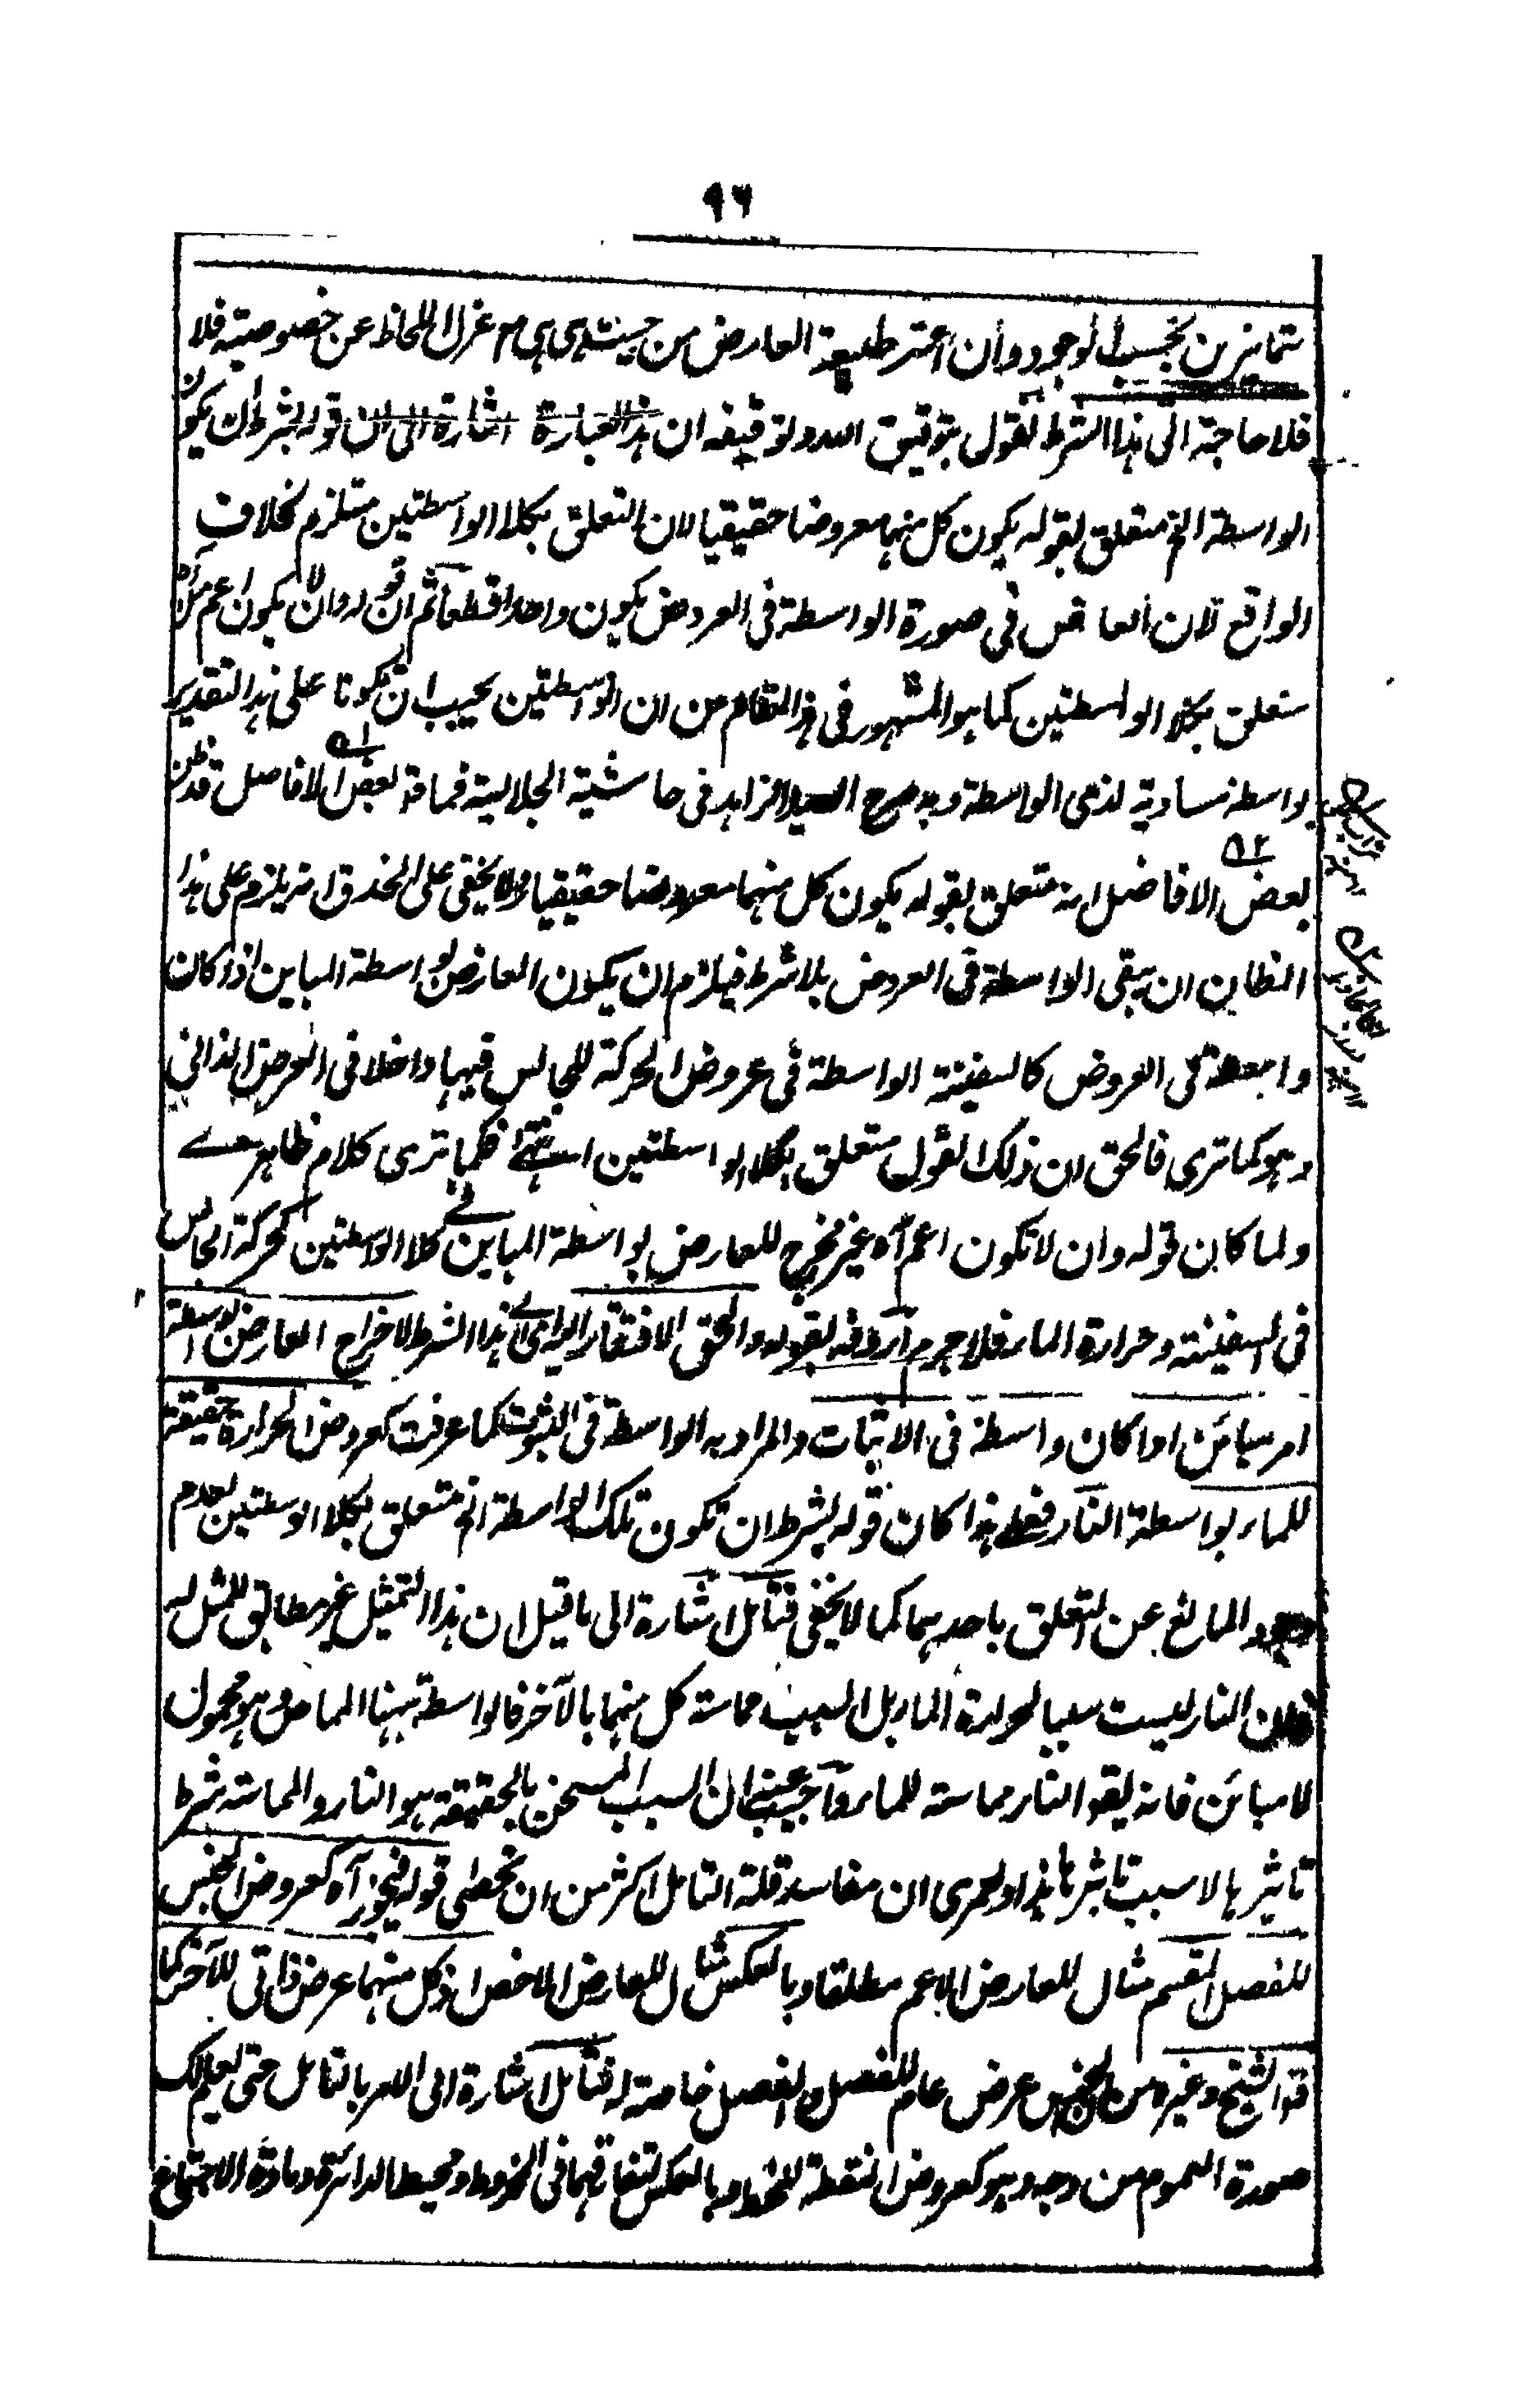 ٩٦
متمايزين بحسب الوجود وان اعتبر طبيعة العارض من حيث هى هى مع عزل اللحاظ عن خصوصيته فلا
فلا حاجة الى هذا الشرط لقول بتوفيق الله وتوقيفه ان هذه العبارة اشارة الى ان قوله بشرط ان يكون
الواسطة الخ متعلق بقوله يكون كل منهما معروضا حقيقيا لان التعلق بكلا الواسطتين مستلزم لخلاف
الواقع لان العارض فى صورة الواسطة فى العروض يكون واحدا قطعا ثم ان قوله وان لا يكون اعم
متعلق بكلا الواسطتين كما هو المشهور فى هذا المقام من ان الواسطتين يجب ان تكونا على هذا التقدير
بواسطة مساوية لذى الواسطة وبه صرح السيد الزاهد فى حاشية الجلالية فما قد بعض الافاضل قد ظن
بعض الافاضل انه متعلق بقوله يكون كل منهما معروضا حقيقيا ولا يخفى على الحذق انه يلزم على هذا
الظان ان يبقى الواسطة فى العروض بلا شرط فيلزم ان يكون العارض بواسطة المباين اذا كان
واسطة فى العروض كالسفينة الواسطة فى عروض الحركة للجالس فيها داخلا فى العرض الذاتى
وهو كما ترى فالحق ان ذلك القول متعلق بكلا الواسطتين انتهى فكما ترى كلام ظاهرى
ولما كان قوله وان لا تكون اعم آه غير مخرج للعارض بواسطة المباين فى كلا الواسطتين كحركة الجالس
فى السفينة وحرارة الماء فلا جرم اردفه بقوله والحق الافتقار اليه اى الى هذا الشرط لاخراج العارض بواسطة
امر مبائن اذا كان واسطة فى الاثبات والمراد به الواسطة فى الثبوت كما عرفت كعروض الحرارة حقيقة
للماء بواسطة النار فعلى هذا كان قوله بشرط ان تكون تلك الواسطة الخ متعلق بكلا الواسطتين لعدم
وجود المانع عن التعلق باحدهما كما لا يخفى فتامل اشارة الى ما قيل ان هذا التمثيل غير مطابق للمثل له
فان النار ليست سببا لحرارة الماء بل السبب مماسة كل منهما بالآخر فالواسطة ههنا المماس وهو محمول
لا مبائن فانه يقو النار مماسة للماء واجيب عنه بان السبب المسخن بالحقيقة هو النار والمماسة شرط
تاثيرها لا سبب تاثيرها هذا ولعمرى ان مفاسد قلة التامل اكثر من ان تحصى قوله فيجوز آه كعروض الجنس
للفصل المقسم مثال للعارض الاعم مطلقا وبالعكس مثال للعارض الاخص اذ كل منهما عرض ذاتى للآخر كما
قوا الشيخ وغيره من ان الجنس عرض عام للفصل والفصل خاصة له فتامل اشارة الى الامر بالتامل حتى يعلم لك
صورة العموم من وجه وهو كعروض النقطة للخط وبالعكس لتفارقهما فى المخروط ومحيط الدائرة ومادة الاجتماع